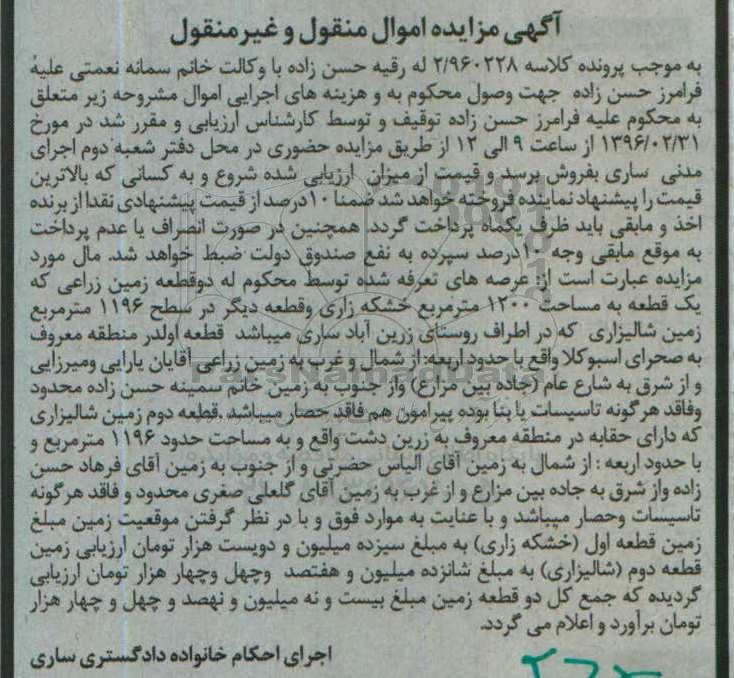 آگهی مزایده اموال منقول و غیرمنقول
به موجب پرونده کلاسه ۲/۹۶۰۲۲۸ له رقیه حسن زاده با وکالت خانم سمانه نعمتی علیهٔ
فرامرز حسن زاده جهت وصول محکوم به و هزینه های اجرایی اموال مشروحه زیر متعلق
به محکوم علیه فرامرز حسن زاده توقیف و توسط کارشناس ارزیابی و مقرر شد در مورخ
۱۳۹۶/۰۲/۳۱ از ساعت ۹ الی ۱۲ از طریق مزایده حضوری در محل دفتر شعبه دوم اجرای
مدنی ساری بفروش برسد و قیمت از میزان ارزیابی شده شروع و به کسانی که بالاترین
قیمت را پیشنهاد نماینده فروخته خواهد شد ضمنا ۱۰درصد از قیمت پیشنهادی نقدا از برنده
اخذ و مابقی باید ظرف یکماه پرداخت گردد. همچنین در صورت انصراف یا عدم پرداخت
به موقع مابقی وجه ۱۰درصد سپرده به نفع صندوق دولت ضبط خواهد شد. مال مورد
مزایده عبارت است از: عرصه های تعرفه شده توسط محکوم له دوقطعه زمین زراعی که
یک قطعه به مساحت ۱۲۰۰ مترمربع خشکه زاری وقطعه دیگر در سطح ۱۱۹۶ مترمربع
زمین شالیزاری که در اطراف روستای زرین آباد ساری میباشد قطعه اولدر منطقه معروف
به صحرای اسبوکلا واقع با حدود اربعه: از شمال و غرب به زمین زراعی آقایان یارایی ومیرزایی
و از شرق به شارع عام (جاده بین مزارع) واز جنوب به زمین خانم سمینه حسن زاده محدود
وفاقد هرگونه تاسیسات یا بنا بوده پیرامون هم فاقد حصار میباشد .قطعه دوم زمین شالیزاری
که دارای حقابه در منطقه معروف به زرین دشت واقع و به مساحت حدود ۱۱۹۶ مترمربع و
با حدود اربعه : از شمال به زمین آقای الیاس حضرتی و از جنوب به زمین آقای فرهاد حسن
زاده واز شرق به جاده بین مزارع و از غرب به زمین آقای گلعلی صغری محدود و فاقد هرگونه
تاسیسات وحصار میباشد و با عنایت به موارد فوق و با در نظر گرفتن موقعیت زمین مبلغ
زمین قطعه اول (خشکه زاری) به مبلغ سیزده میلیون و دویست هزار تومان ارزیابی زمین
قطعه دوم (شالیزاری) به مبلغ شانزده میلیون و هفتصد وچهل وچهار هزار تومان ارزیابی
گردیده که جمع کل دو قطعه زمین مبلغ بیست و نه میلیون و نهصد و چهل و چهار هزار
تومان برآورد و اعلام می گردد.
اجرای احکام خانواده دادگستری ساری